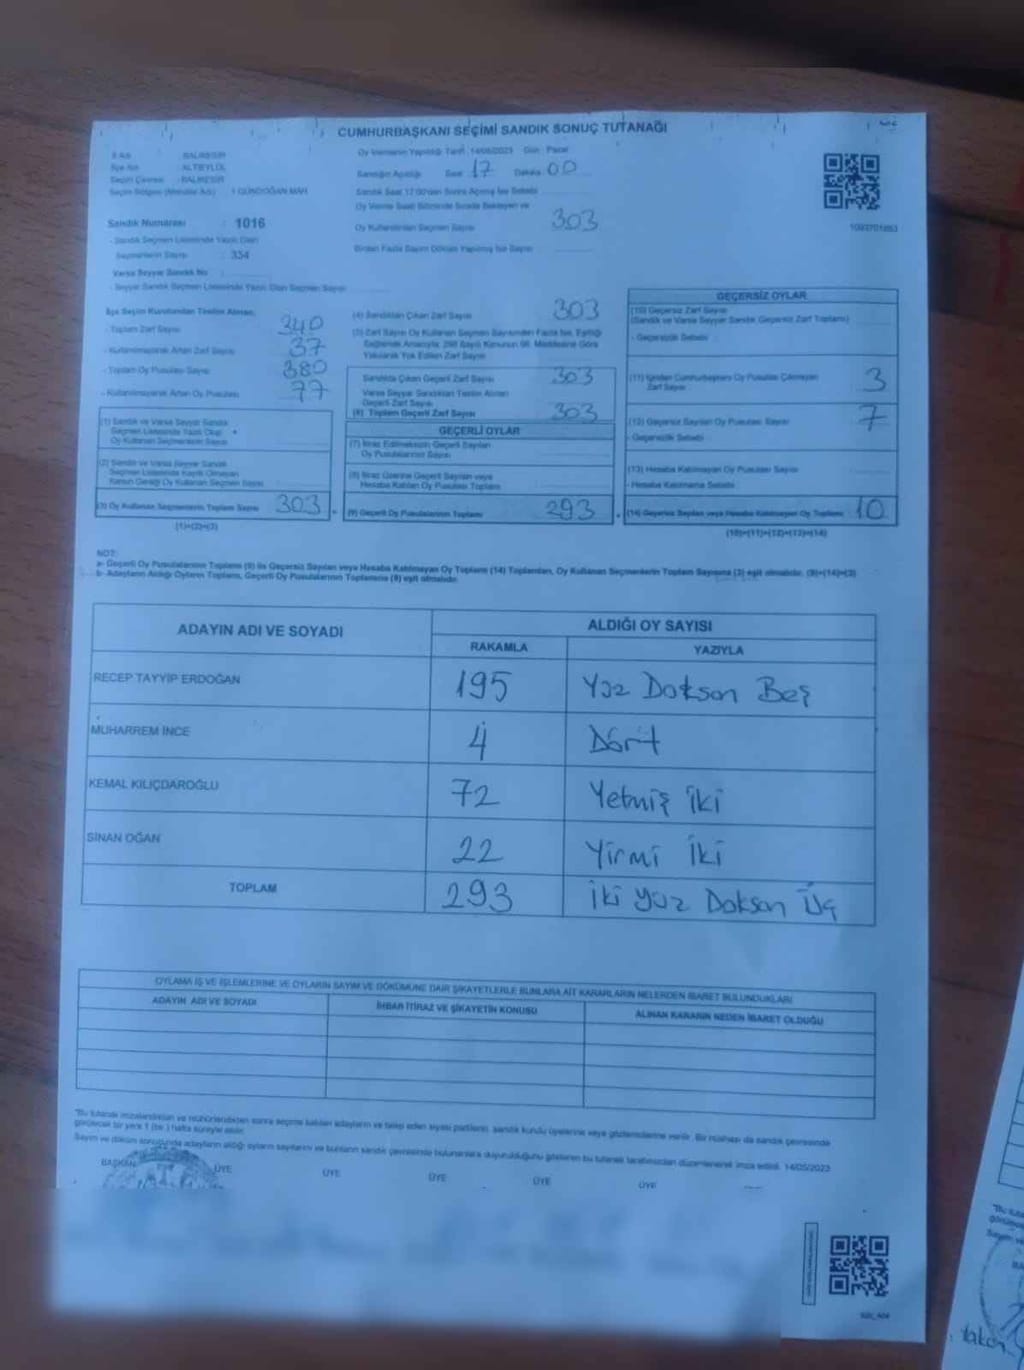 CUMHURBAŞKANI SEÇİMİ SANDIK SONUÇ TUTANAĞI
İl Adı : BALIKESİR
İlçe Adı : ALTIEYLÜL
Seçim Çevresi : BALIKESİR
Seçim Bölgesi (Mahalle Adı) : GÜNDOĞAN MAH
Oy Vermenin Yapıldığı Tarih 14/05/2023 Gün Pazar
Sandığın Açıldığı Saat 17 Dakika 00
Sandık Saat 17.00'den Sonra Açılmış İse Sebebi
Oy Verme Saati Bitiminde Sırada Bekleyen ve
Oy Kullandırılan Seçmen Sayısı 303
Birden Fazla Sayım Döküm Yapılmış İse Sayısı
Sandık Numarası : 1016
- Sandık Seçmen Listesinde Yazılı Olan
Seçmenlerin Sayısı : 334
Varsa Seyyar Sandık No
- Seyyar Sandık Seçmen Listesinde Yazılı Olan Seçmen Sayısı
İlçe Seçim Kurulundan Teslim Alınan:
- Toplam Zarf Sayısı 340
- Kullanılmayarak Artan Zarf Sayısı 37
- Toplam Oy Pusulası Sayısı 380
- Kullanılmayarak Artan Oy Pusulası 77
(1) Sandık ve Varsa Seyyar Sandık
Seçmen Listesinde Yazılı Olup
Oy Kullanan Seçmenlerin Sayısı
(2) Sandık ve Varsa Seyyar Sandık
Seçmen Listesinde Kayıtlı Olmayan
Kanun Gereği Oy Kullanan Seçmen Sayısı
(3) Oy Kullanan Seçmenlerin Toplam Sayısı 303
(1)+(2)=(3)
(4) Sandıktan Çıkan Zarf Sayısı 303
(5) Zarf Sayısı Oy Kullanan Seçmen Sayısından Fazla İse, Eşitliği
Sağlamak Amacıyla; 298 Sayılı Kanunun 98. Maddesine Göre
Yakılarak Yok Edilen Zarf Sayısı
Sandıkta Çıkan Geçerli Zarf Sayısı 303
Varsa Seyyar Sandıktan Teslim Alınan
Geçerli Zarf Sayısı
(6) Toplam Geçerli Zarf Sayısı 303
GEÇERLİ OYLAR
(7) İtiraz Edilmeksizin Geçerli Sayılan
Oy Pusulalarının Sayısı
(8) İtiraz Üzerine Geçerli Sayılan veya
Hesaba Katılan Oy Pusulası Toplamı
(9) Geçerli Oy Pusulalarının Toplamı 293
GEÇERSİZ OYLAR
(10) Geçersiz Zarf Sayısı
(Sandık ve Varsa Seyyar Sandık Geçersiz Zarf Toplamı)
- Geçersizlik Sebebi
(11) İçinden Cumhurbaşkanı Oy Pusulası Çıkmayan
Zarf Sayısı 3
(12) Geçersiz Sayılan Oy Pusulası Sayısı 7
- Geçersizlik Sebebi
(13) Hesaba Katılmayan Oy Pusulası Sayısı
- Hesaba Katılmama Sebebi
(14) Geçersiz Sayılan veya Hesaba Katılmayan Oy Toplamı 10
(10)+(11)+(12)+(13)=(14)
NOT:
a- Geçerli Oy Pusulalarının Toplamı (9) ile Geçersiz Sayılan veya Hesaba Katılmayan Oy Toplamı (14) Toplamları, Oy Kullanan Seçmenlerin Toplam Sayısına (3) eşit olmalıdır. (9)+(14)=(3)
b- Adayların Aldığı Oyların Toplamı, Geçerli Oy Pusulalarının Toplamına (9) eşit olmalıdır.
ADAYIN ADI VE SOYADI ALDIĞI OY SAYISI
RAKAMLA YAZIYLA
RECEP TAYYİP ERDOĞAN 195 Yüz Doksan Beş
MUHARREM İNCE 4 Dört
KEMAL KILIÇDAROĞLU 72 Yetmiş İki
SİNAN OĞAN 22 Yirmi İki
TOPLAM 293 İki Yüz Doksan Üç
OYLAMA İŞ VE İŞLEMLERİNE VE OYLARIN SAYIM VE DÖKÜMÜNE DAİR ŞİKAYETLERLE BUNLARA AİT KARARLARIN NELERDEN İBARET BULUNDUKLARI
ADAYIN ADI VE SOYADI İHBAR İTİRAZ VE ŞİKAYETİN KONUSU ALINAN KARARIN NEDEN İBARET OLDUĞU
"Bu tutanak imzalandıktan ve mühürlendikten sonra seçime katılan adayların ve talep eden siyasi partilerin, sandık kurulu üyelerine veya gözlemcilerine verilir. Bir nüshası da sandık çevresinde
görülecek bir yere 1 (bir) hafta süreyle asılır.
Sayım ve döküm sonucunda adayların aldığı oyların sayılarını ve bunların sandık çevresinde bulunanlara duyurulduğunu gösteren bu tutanak tarafımızdan düzenlenerek imza edildi. 14/05/2023
BAŞKAN ÜYE ÜYE ÜYE ÜYE ÜYE